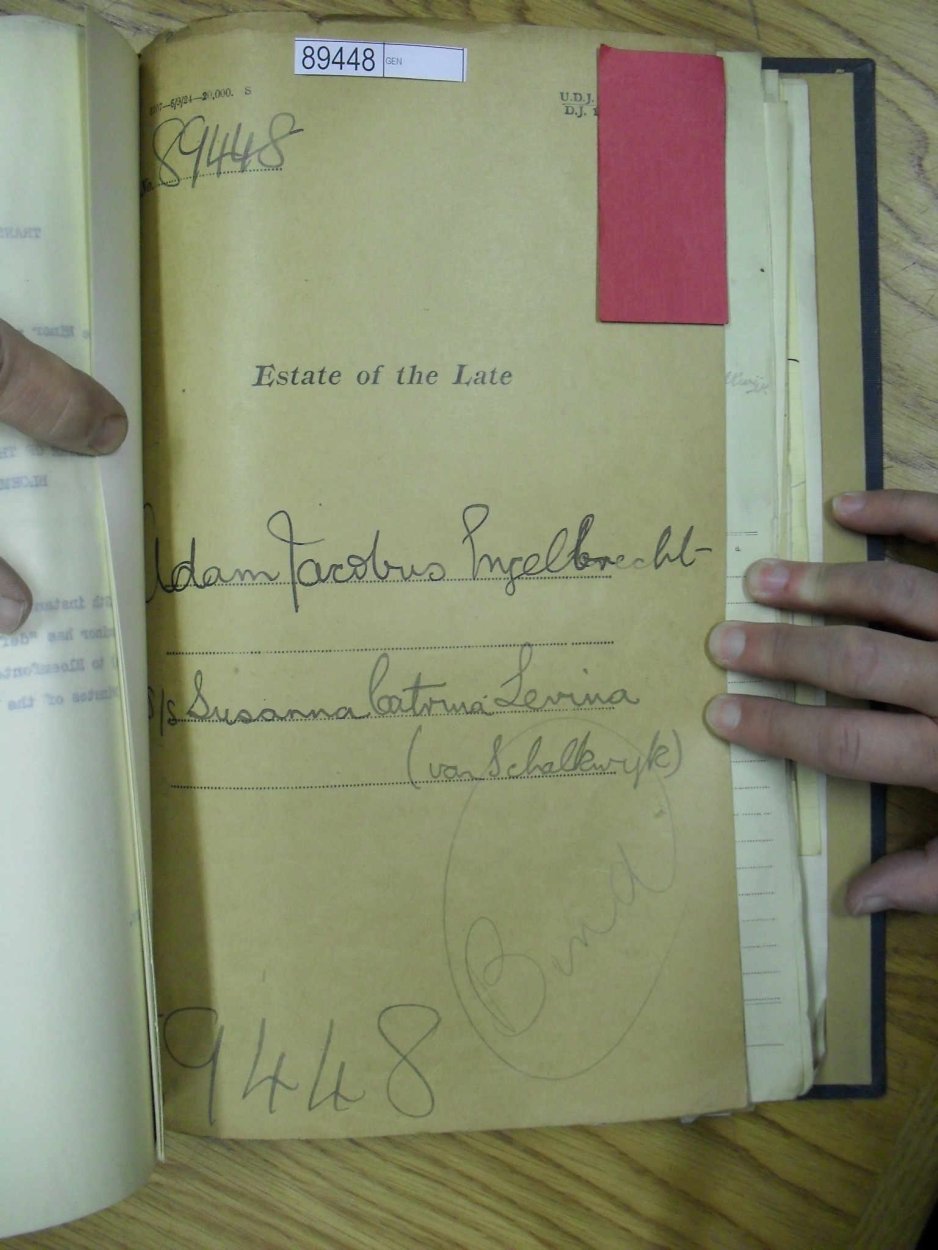 89448 GEN
—6/3/24—20,000. S
U.D.J.
D.J.
No. 89448
Estate of the Late
Adam Jacobus Ingelbrecht
s/s Susanna Catrina Levina
(van Schalkwyk)
Bind
9448